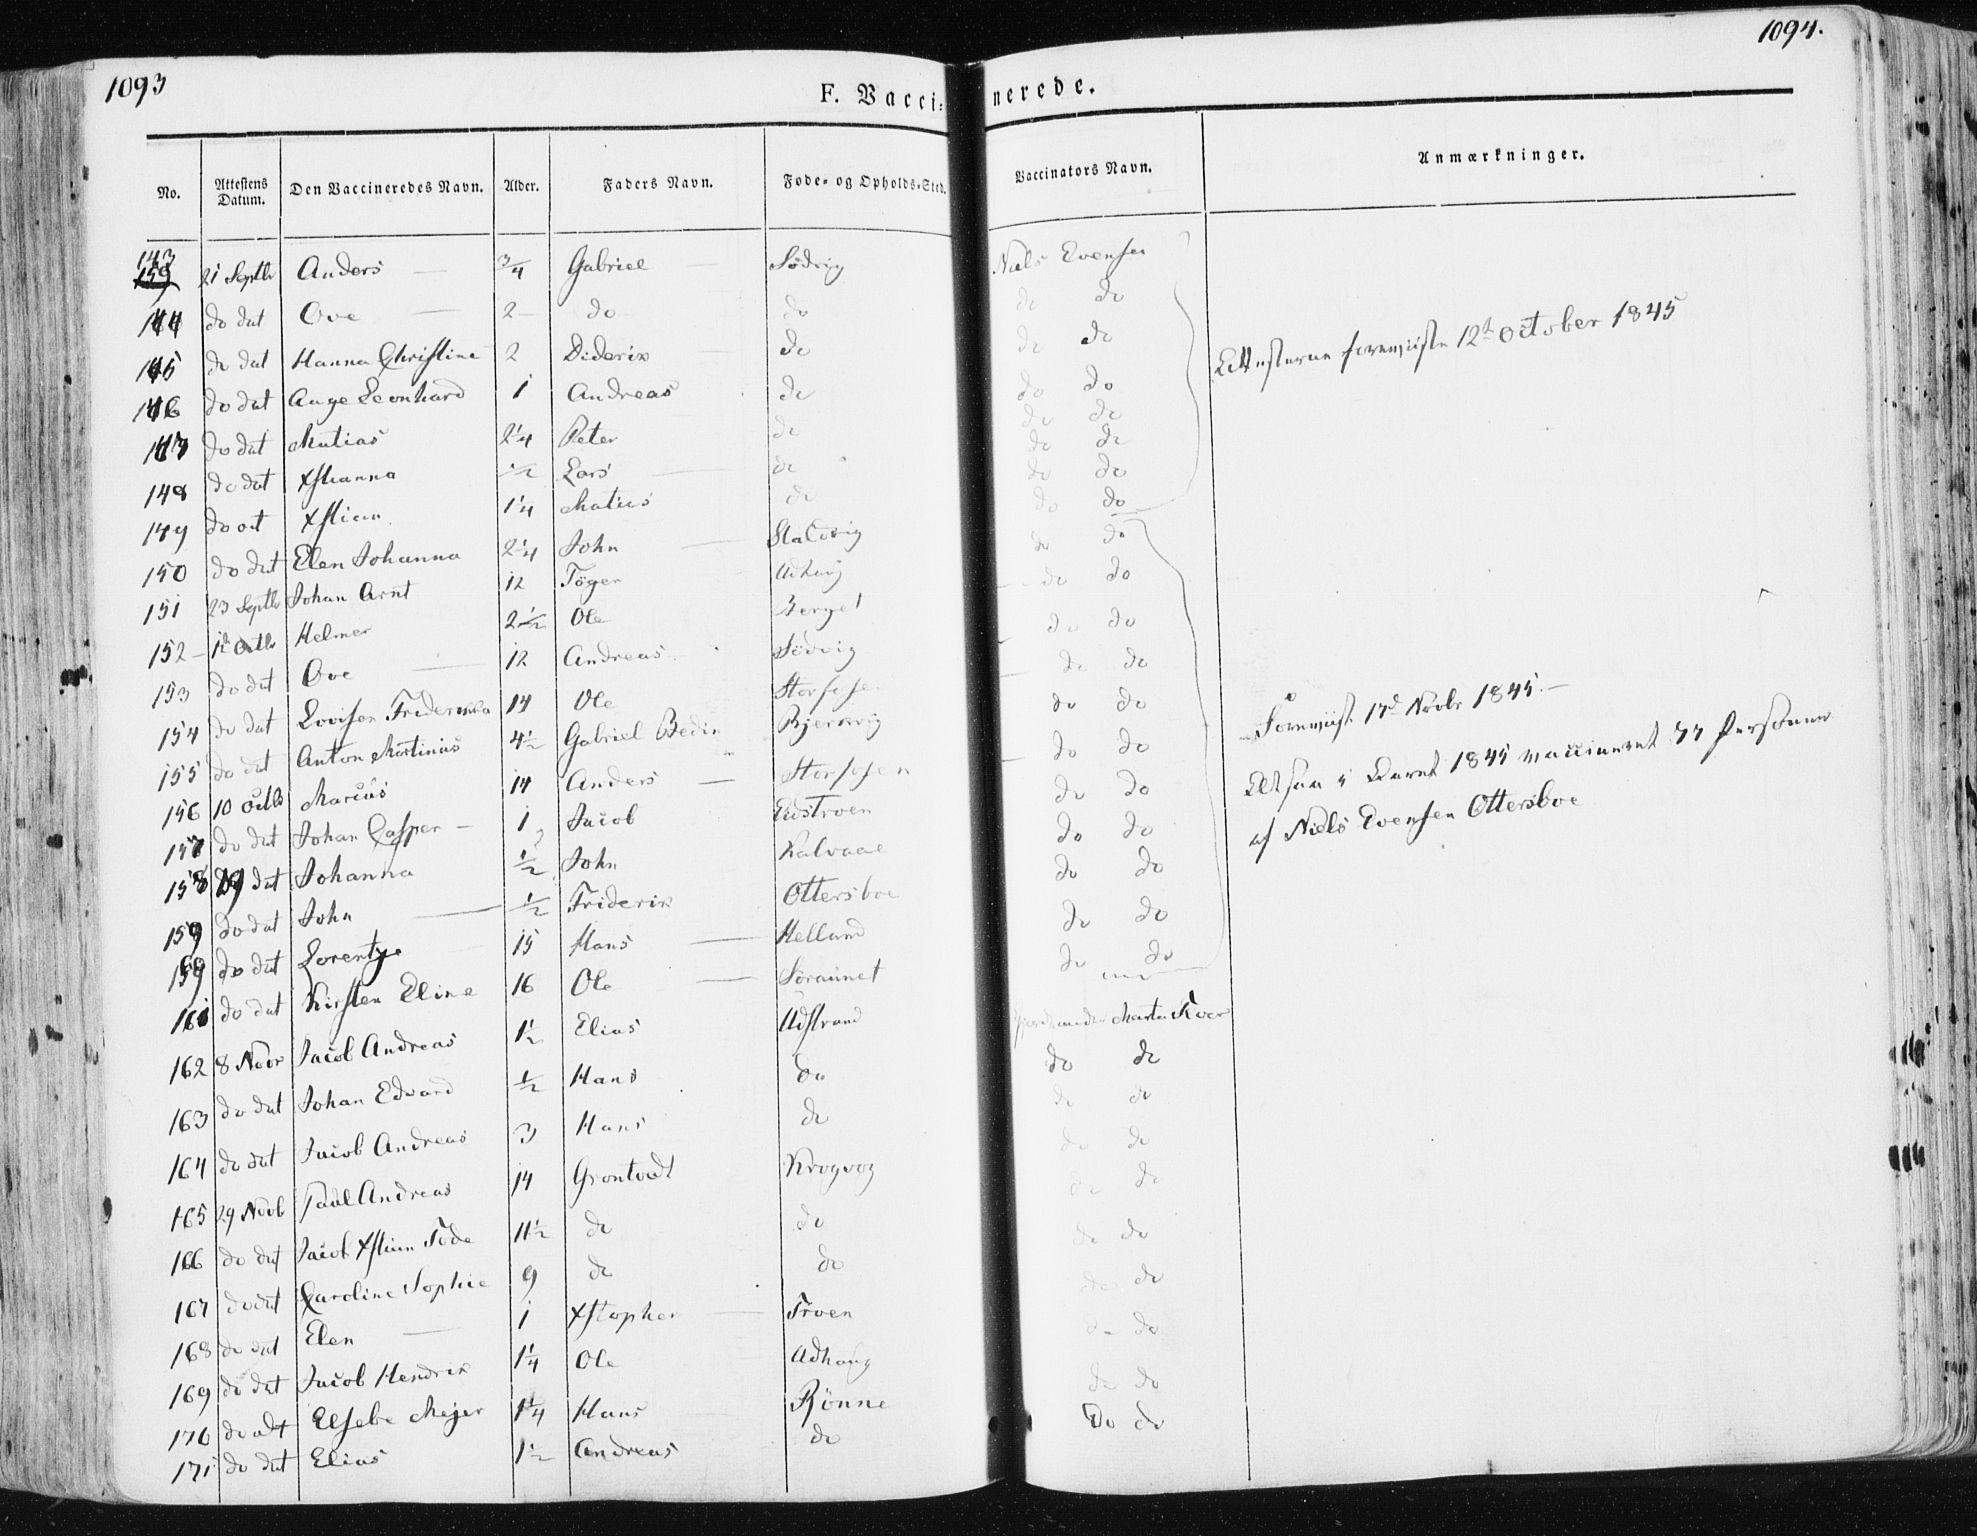 1093
1094.
F. Vacci- nerede.
No. Attestens Datum. Den Vaccineredes Navn. Alder. Faders Navn. Føde- og Opholds-Sted. Vaccinators Navn. Anmærkninger.
143 159 21 Septb Anders — 3/4 Gabriel Sødvig Niels Evensen
144 do dat Ove — 2 do do do do
145 do dat Hanna Christine 2 Diderik do do do
Attesterne foreviiste 12te October 1845
146 do dat Aage Leonhard 1 Andreas do do do
147 do dat Matias 2 1/4 Peter do do do
148 do dat Xstianna 1/2 Lars do do do
149 do dat Xstian 1 1/4 Matias do do do
150 do dat Elen Johanna 2 1/4 John Staldvig do do
151 23 Septb Johan Arnt 12 Töger Adhaug do do
152 1te Octb Helmer 2 1/2 Ole Berget do do
153 do dat Ove — 12 Andreas Sødvig do do
154 do dat Lovisen Friderikka 14 Ole Storfosen do do
155 do dat Anton Martinus 4 1/2 Gabriel Bjerkvig do do
Foreviist 17d Novbr 1845.—
156 10 Octb Marcus 14 Anders — Storfosen do do
157 do dat Johan Casper — 1 Jacob Eidstroen do do
Altsaa i Aaret 1845 vaccineret 77 Personer
af Niels Evensen Ottersboe
158 19 dat Johanna 1/2 John Kalvaae do do
159 do dat John — 1/2 Friderik Ottersboe do do
159 do dat Lorentze 15 Hans — Helland do do
161 do dat Kirsten Eline 16 Ole — Søraunet do do
162 8 Novr Jacob Andreas 1 1/2 Elias Udstrand Marta
163 do dat Johan Edvard 1/2 Hans do do do
164 do dat Jacob Andreas 3 Hans do do do
165 29 Novb Paul Andreas 14 Grontvedt Krogvog do do
166 do dat Jacob Xstian Tode 11 1/2 do do do do
167 do dat Caroline Sophie 9 do do do do
168 do dat Elen — 1 Xstopher — Troen do do
169 do dat Jacob Hendrik 1 1/4 Ole Adhaug do do
170 do dat Elsebe Mejer 1 1/4 Hans Rønne do do
171 do dat Elias 1 1/2 Andreas do do do